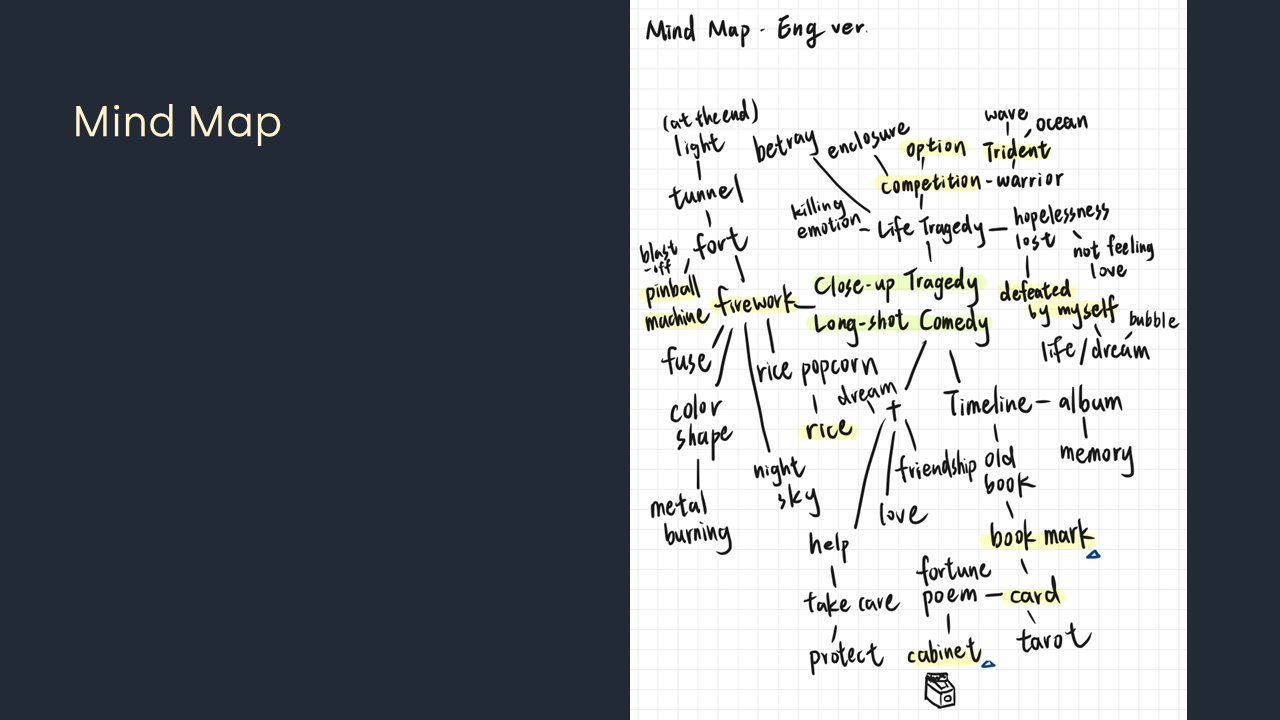 Mind Map
Mind Map - Eng ver.
(at the end)
light
tunnel
fort
blast
-off
pinball
machine
firework
fuse
color
shape
metal
burning
night
sky
rice popcorn
rice
betray
enclosure
option
competition - warrior
wave
ocean
Trident
killing
emotion
Life Tragedy
hopelessness
lost
not feeling
love
defeated
by myself
bubble
life/dream
Close-up Tragedy
Long-shot Comedy
dream
+
friendship
love
help
take care
protect
Timeline - album
memory
old
book
book mark
card
tarot
fortune
poem
cabinet